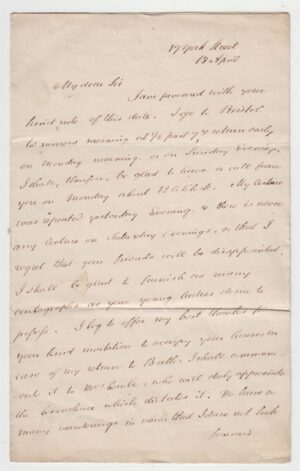 17 York Street
13 April
My dear Sir
I am favored with your
kind note of this date. I go to Bristol
to morrow morning at ½ past 7, & return early
on Monday morning, or on Sunday Evening,
I shall, therefore, be glad to have a call from
you on Monday about 12 O'Clock. My lecture
was repeated yesterday Evening, & there is never
any lecture on Saturday evenings, so that I
regret that your friends will be disappointed.
I shall be glad to furnish as many
autographs as your young ladies desire to
possess. I beg to offer my best thanks for
your kind invitation to occupy your house in
case of my return to Bath - I shall communi-
cate it to Mrs Combe, who will duly appreciate
the benevolence which dictates it. We have so
many wanderings in view that I dare not look
forward